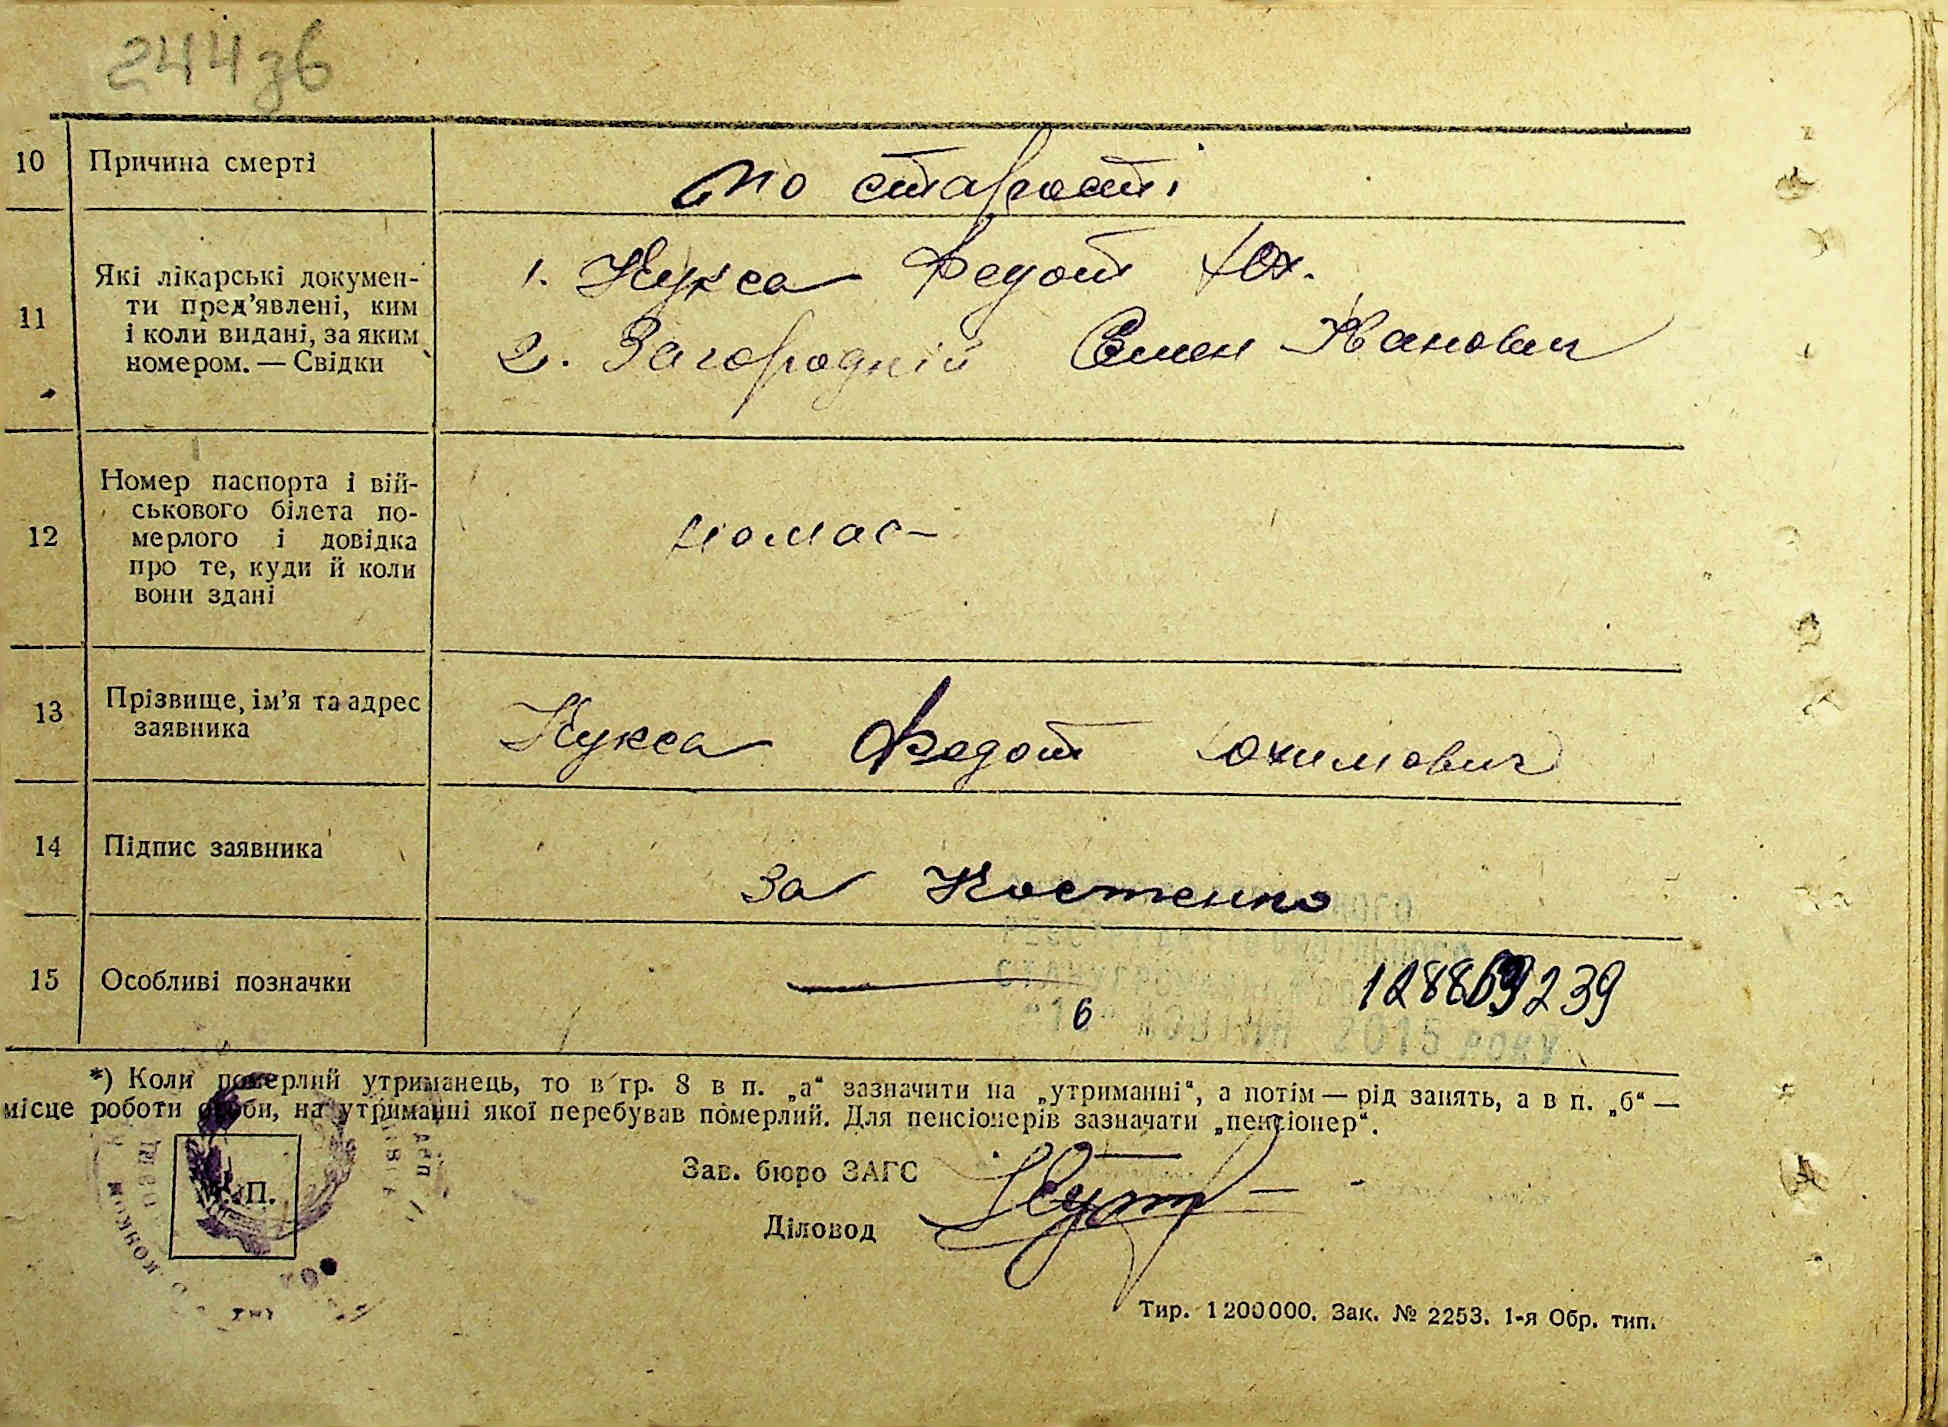 244зб
10 Причина смерті по старості
11 Які лікарські докумен-
ти пред'явлені, ким
і коли видані, за яким
номером. — Свідки
1. Кукса Федот Юх.
2. Загородній Семен Иванович
12 Номер паспорта і вій-
ськового білета по-
мерлого і довідка
про те, куди й коли
вони здані
немає
13 Прізвище, ім'я та адрес
заявника
Кукса Федот Юхимович
14 Підпис заявника
за Костенко
15 Особливі позначки
6
2015 року
*) Коли померлий утриманець, то в гр. 8 в п. „а“ зазначити на „утриманні“, а потім — рід занять, а в п. „б“ —
місце роботи особи, на утриманні якої перебував померлий. Для пенсіонерів зазначати „пенсіонер“.
Зав. бюро ЗАГС
М. П.
Діловод
Тир. 1200000. Зак. № 2253. 1-я Обр. тип.